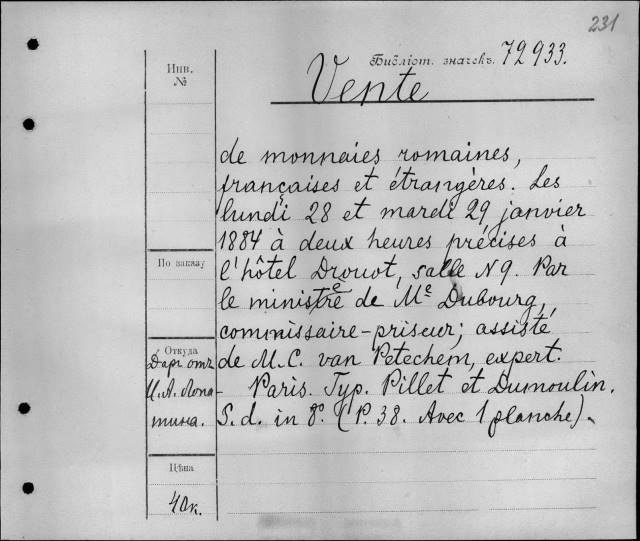 231
Библіот. значекъ. 72933.
Vente
Инв.
№
de monnaies romaines,
françaises et étrangères. Les
lundi 28 et mardi 29 janvier
1884 à deux heures précises à
По заказу
l'hôtel Drouot, salle N 9. Par
le ministre de Me Dubourg,
commissaire-priseur; assisté
Откуда
Даръ отъ
И. А. Лопа-
тина.
de M. C. van Petechem, expert.
Paris. Typ. Pillet et Dumoulin.
S. d. in 8°. (P. 38. Avec 1 planche).
Цѣна
40к.